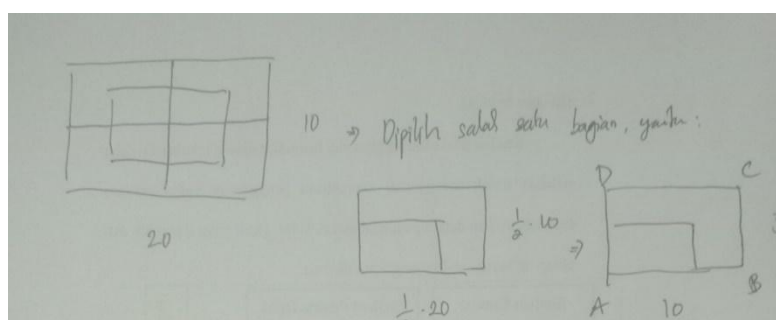 10 ⇒ Dipilih salah satu bagian, yaitu:
20
D C
1/2 . 10 ⇒
A 10 B
1/ . 20